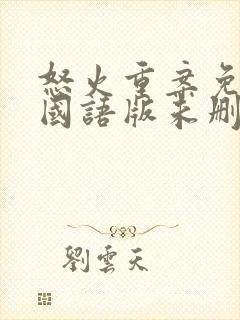 怒火重案免
國語版未删
劉雲天